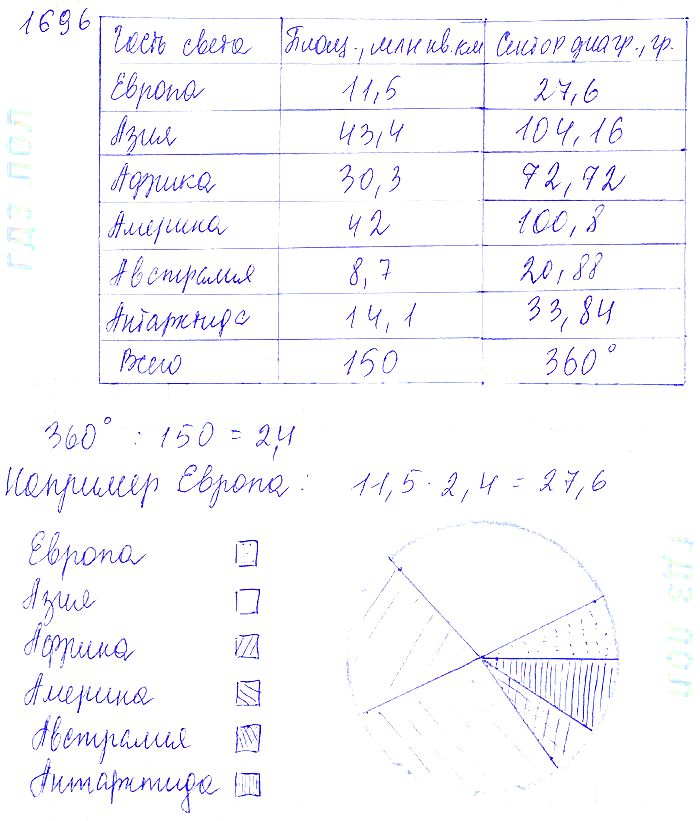 1696
Часть света Площ., млн кв. км Сектор диагр., гр.
Европа 11,5 27,6
Азия 43,4 104,16
Африка 30,3 72,72
Америка 42 100,8
Австралия 8,7 20,88
Антарктида 14,1 33,84
Всего 150 360°
360° : 150 = 2,4
Например Европа: 11,5 · 2,4 = 27,6
Европа
Азия
Африка
Америка
Австралия
Антарктида
ГДЗ ПОЛ
ГДЗ ПОЛ